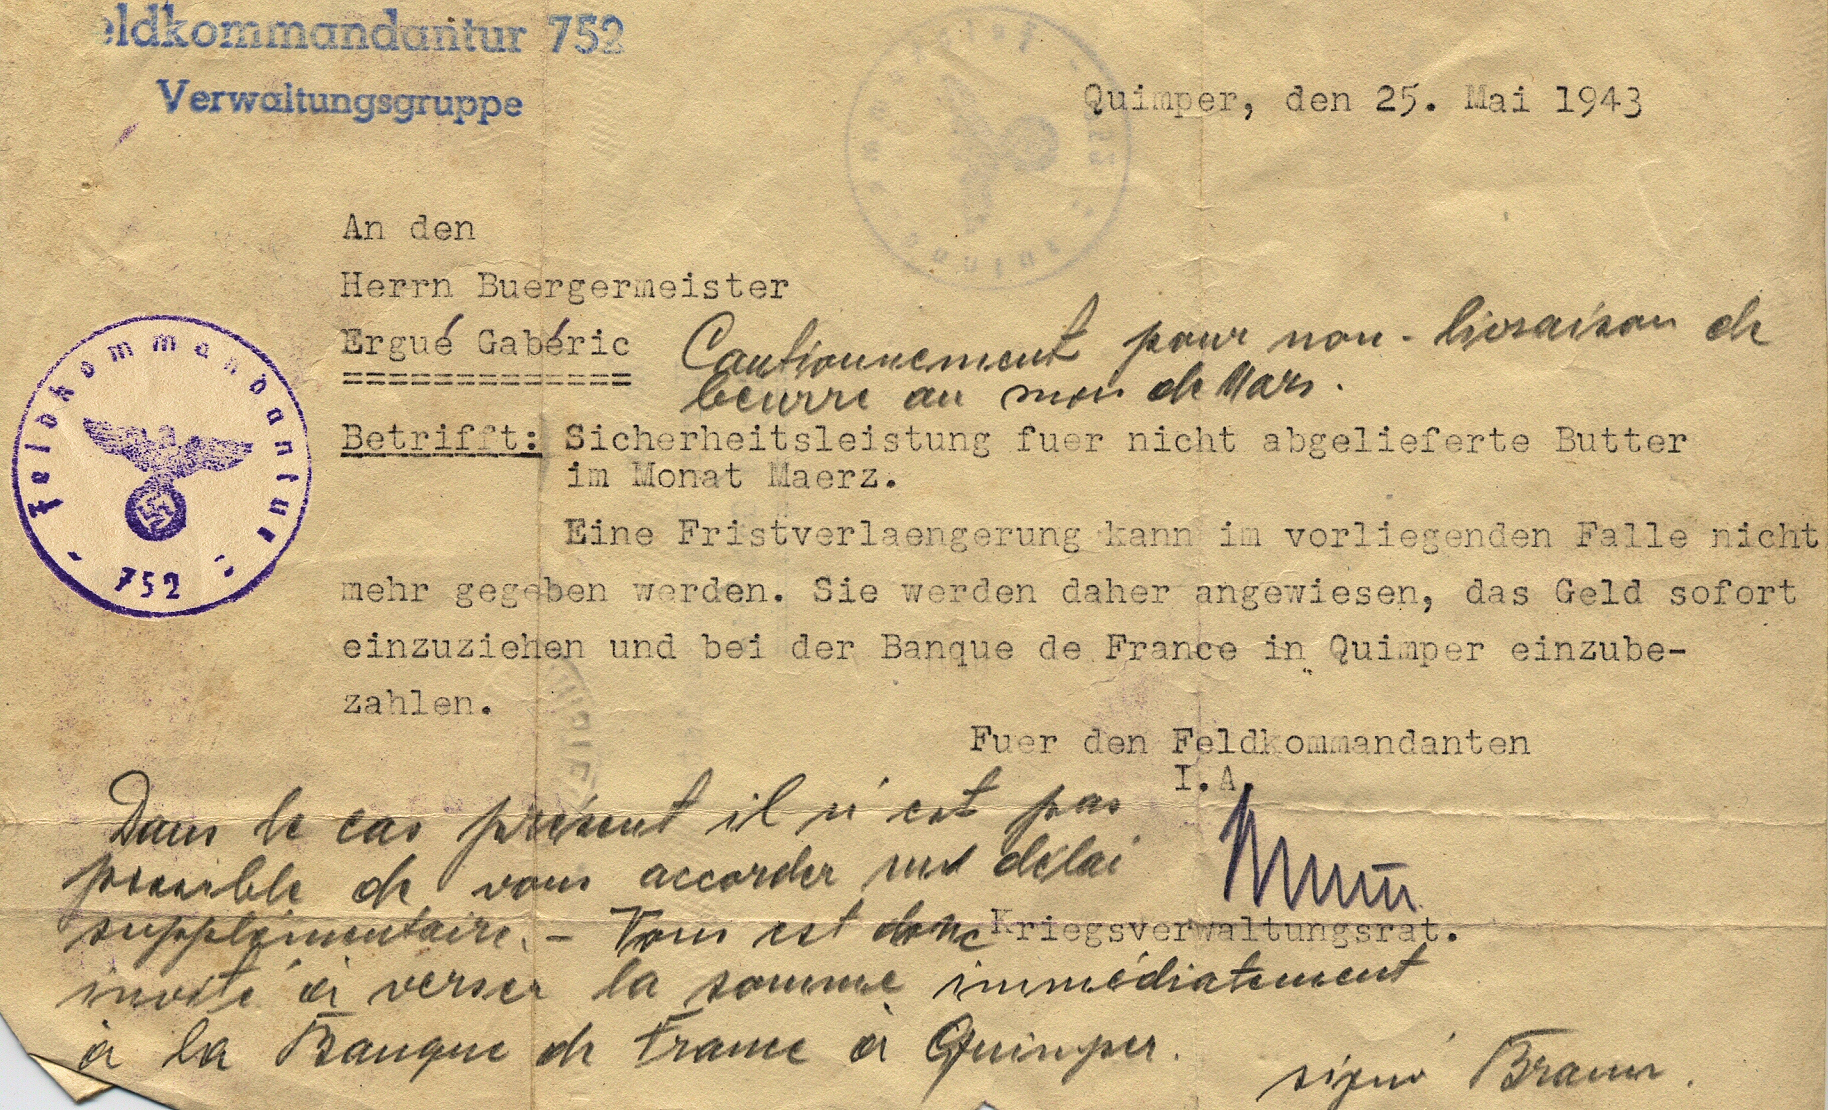 eldkommandantur 752
Verwaltungsgruppe
Quimper, den 25. Mai 1943
An den
Herrn Buergermeister
Ergué Gabéric
=============
Cautionnement pour non-livraison de
beurre au mois de Mars.
Betrifft: Sicherheitsleistung fuer nicht abgelieferte Butter
im Monat Maerz.
Eine Fristverlaengerung kann im vorliegenden Falle nicht
mehr gegeben werden. Sie werden daher angewiesen, das Geld sofort
einzuziehen und bei der Banque de France in Quimper einzube-
zahlen.
Feldkommandantur
752
Fuer den Feldkommandanten
I.A.
Kriegsverwaltungsrat.
Dans le cas présent il n'est pas
possible de vous accorder un délai
supplémentaire. – Vous est donc
invité à verser la somme immédiatement
à la Banque de France à Quimper.
signé Braun.